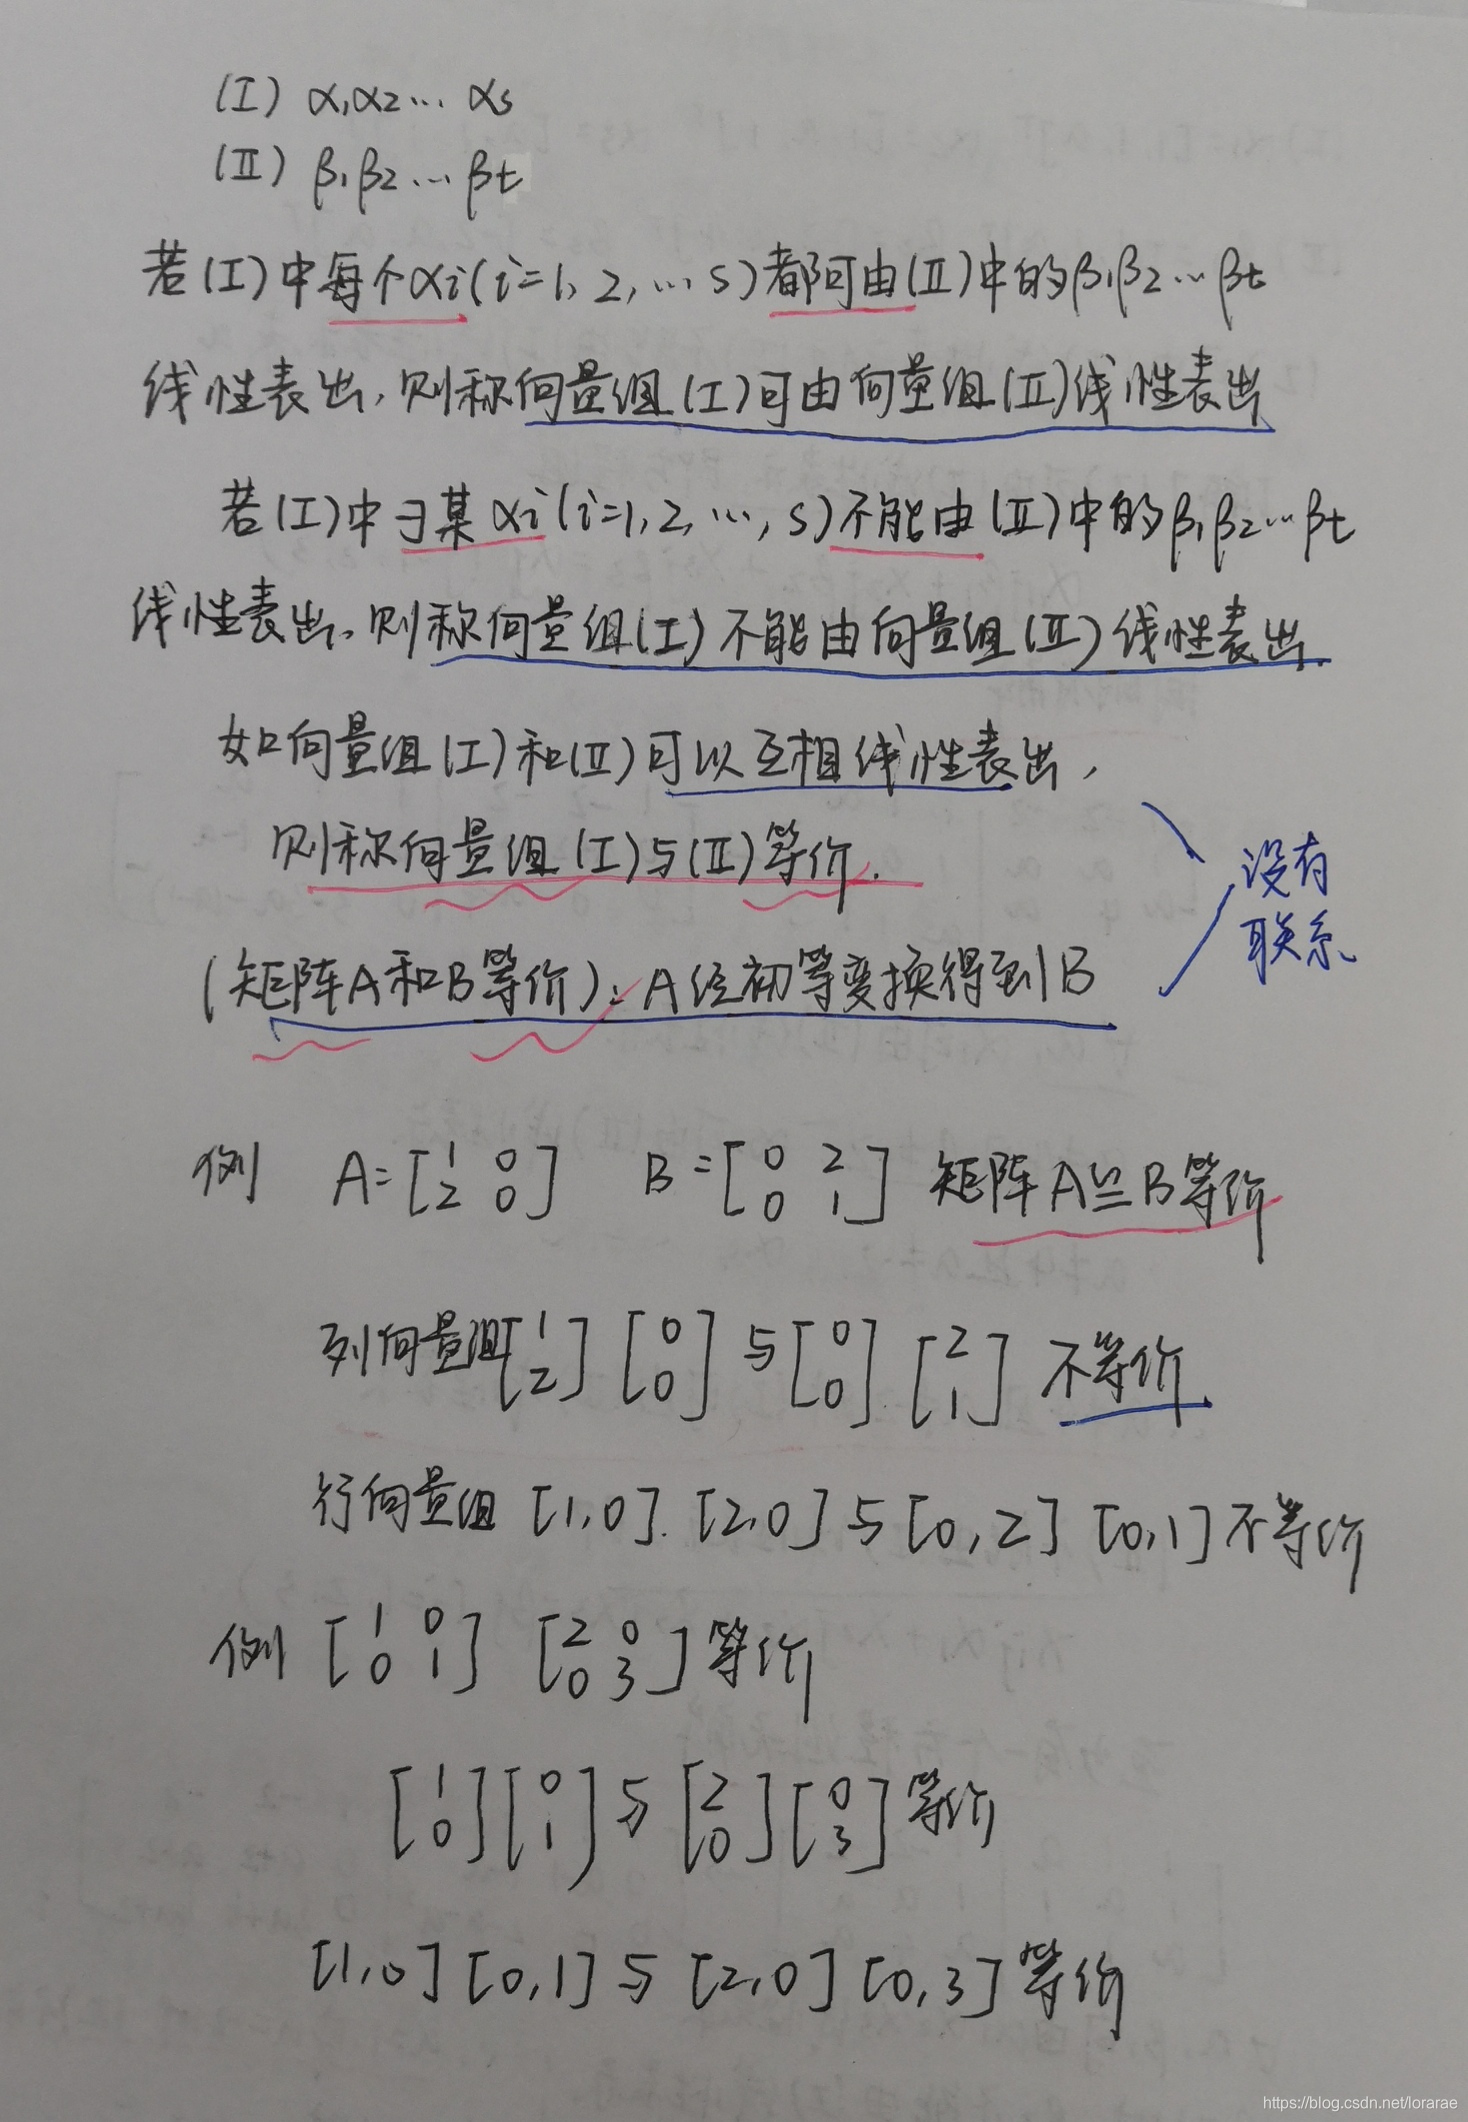 (Ⅰ) α₁α₂… αs
(Ⅱ) β₁β₂… βt
若(Ⅰ)中每个αi(i=1,2,…s)都可由(Ⅱ)中的β₁β₂…βt
线性表出,则称向量组(Ⅰ)可由向量组(Ⅱ)线性表出
若(Ⅰ)中∃某αi(i=1,2,…,s)不能由(Ⅱ)中的β₁β₂…βt
线性表出,则称向量组(Ⅰ)不能由向量组(Ⅱ)线性表出.
如向量组(Ⅰ)和(Ⅱ)可以互相线性表出,
则称向量组(Ⅰ)与(Ⅱ)等价.
没有
联系
(矩阵A和B等价): A经初等变换得到B
例 A=[1 0 B=[0 2 矩阵A≌B等价
2 0] 0 1]
列向量组[1 [0 与[0 [2 不等价.
2] 0] 0] 1]
行向量组 [1,0]. [2,0] 与 [0,2] [0,1] 不等价
例 [1 0 [2 0 等价
0 1] 0 3]
[1 [0 与 [2 [0 等价
0] 1] 0] 3]
[1,0] [0,1] 与 [2,0] [0,3] 等价
https://blog.csdn.net/lorarae